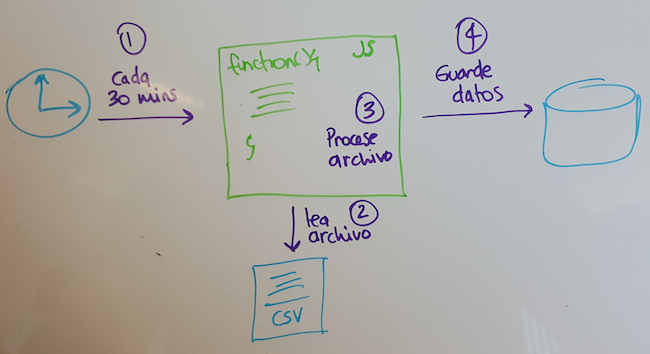 1
Cada
30 mins
function() {
JS
}
3
Procese
archivo
4
Guarde
datos
2
lea
archivo
CSV